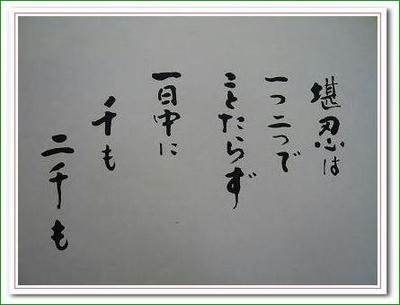 堪忍は
一つ二つで
ことたらず
一日中に
千も
二千も